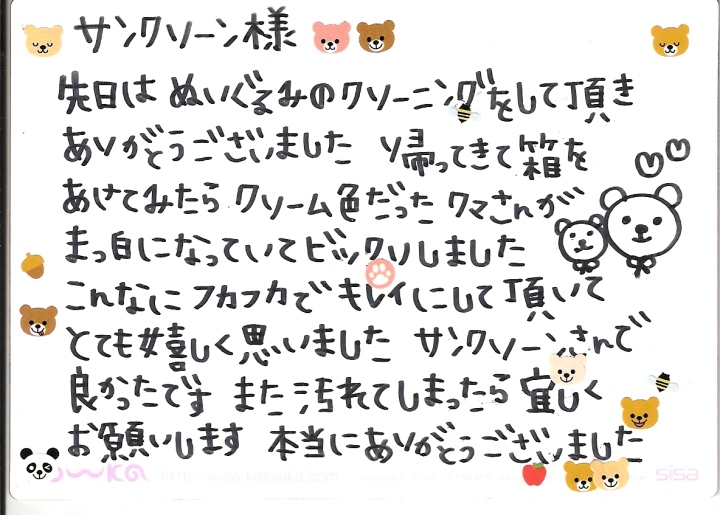 サンクリーン様
先日は ぬいぐるみのクリーニングをして頂き
ありがとうございました 帰ってきて箱を
あけてみたら クリーム色だった クマさんが
まっ白になっていてビックリしました
こんなに フカフカで キレイにして頂いて
とても嬉しく思いました サンクリーンさんで
良かったです また汚れてしまったら宜しく
お願いします 本当にありがとうございました
http://www.kasyuka.com
sisa